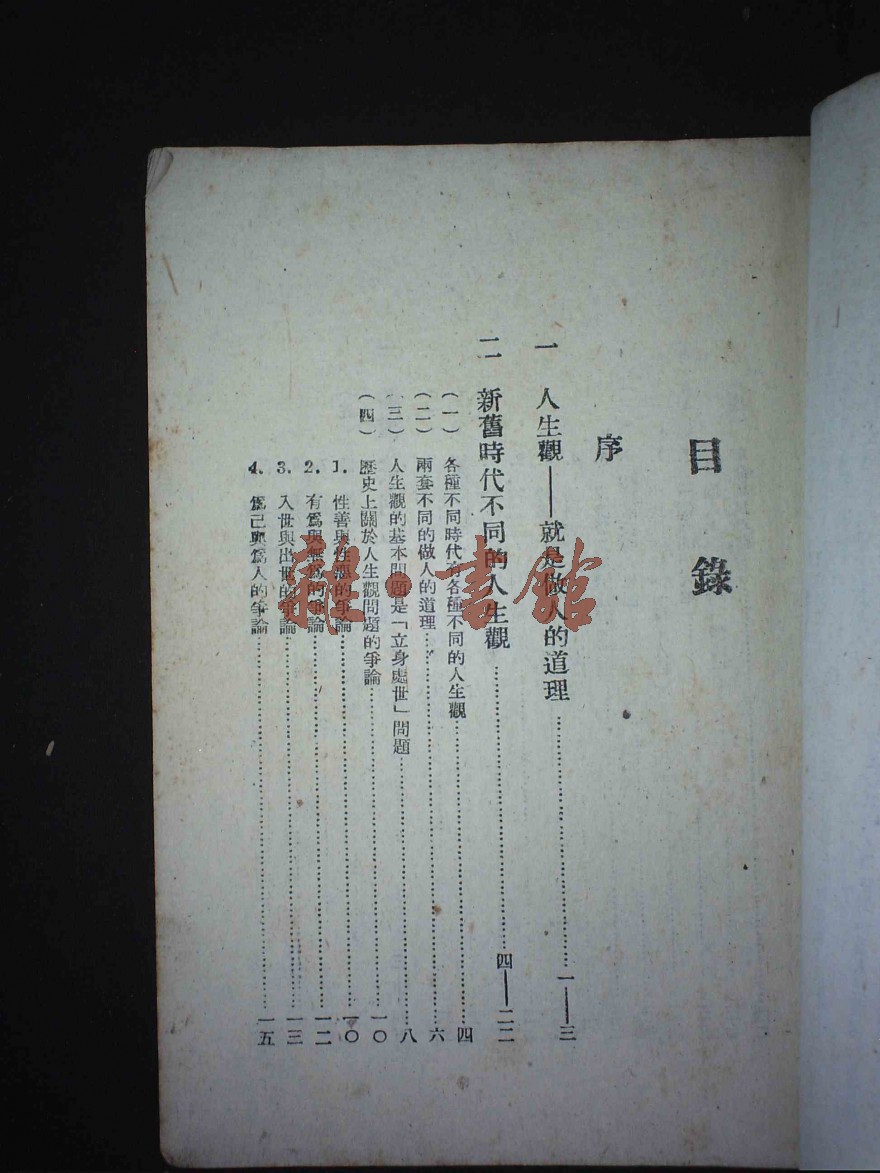 目錄
序
一 人生觀——就是做人的道理……一——三
二 新舊時代不同的人生觀……四——二二
(一) 各種不同時代有各種不同的人生觀……四
(二) 兩套不同的做人的道理……六
(三) 人生觀的基本問題是「立身處世」問題……八
(四) 歷史上關於人生觀問題的爭論……一〇
1. 性善與性惡的爭論……一〇
2. 有爲與無爲的爭論……一二
3. 入世與出世的爭論……一三
4. 爲己與爲人的爭論……一五
雜·書館